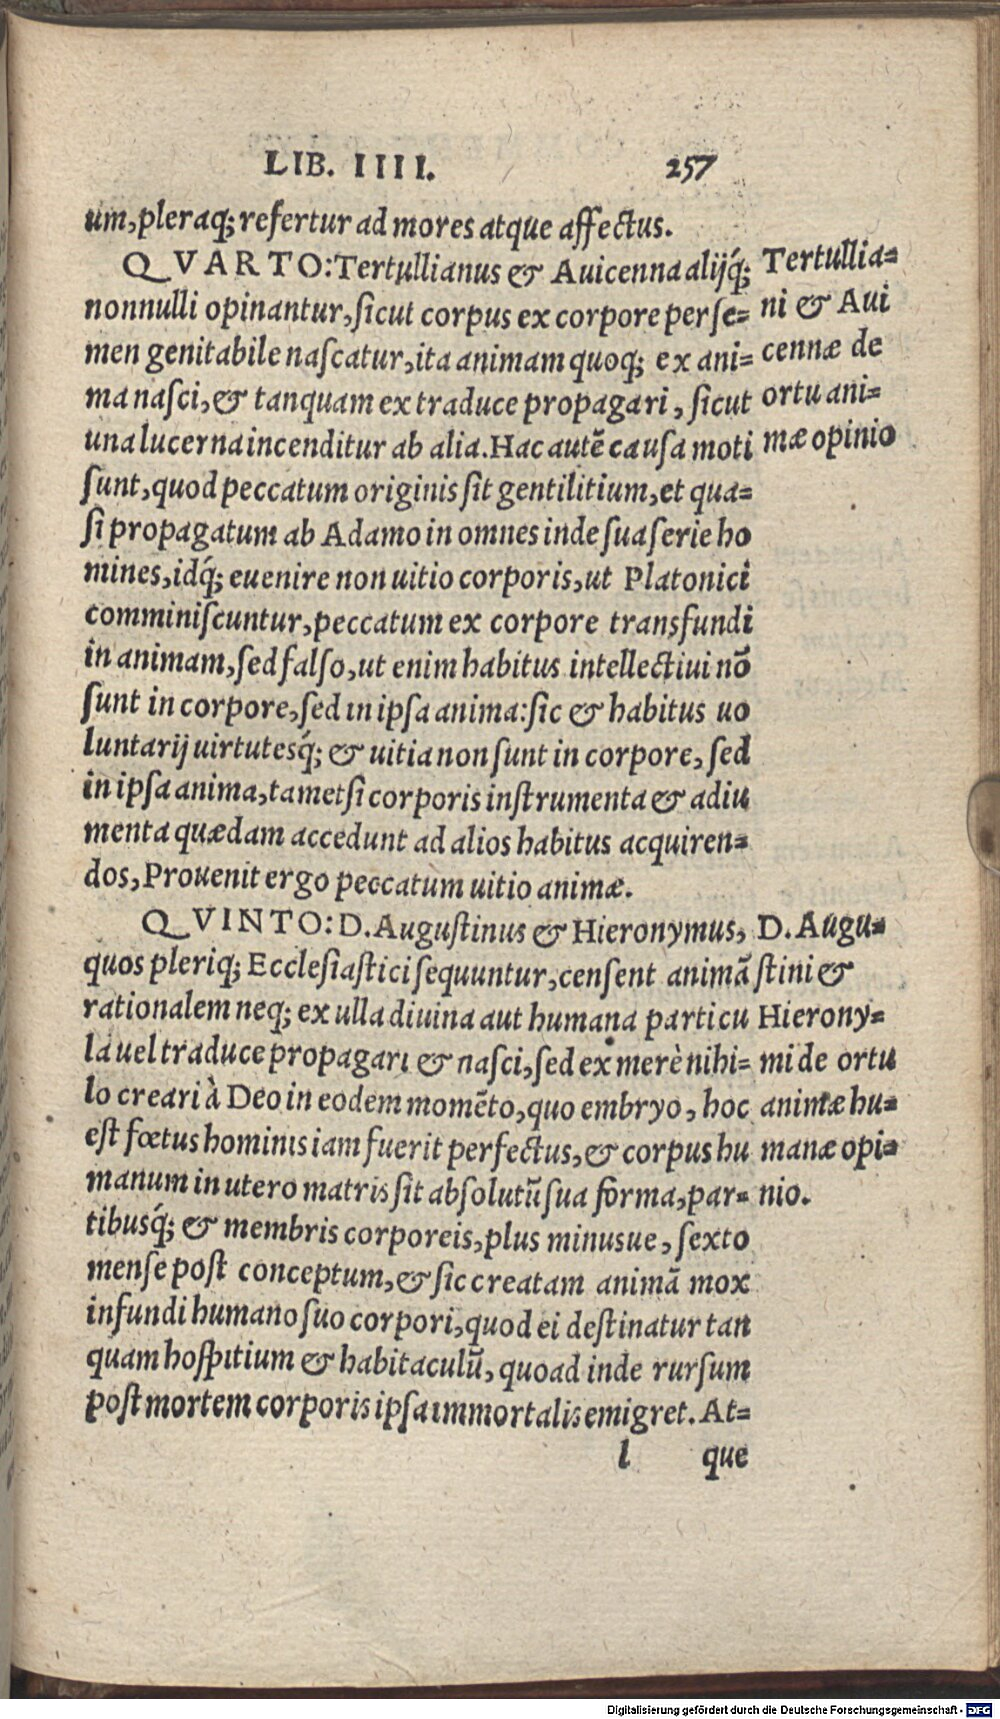 LIB. IIII. 257
um, pleraq; refertur ad mores atque affectus.
QVARTO: Tertullianus & Avicenna alijq́;
nonnulli opinantur, ſicut corpus ex corpore per ſe=
men genitabile naſcatur, ita animam quoq; ex ani=
ma naſci, & tanquam ex traduce propagari, ſicut
una lucerna incenditur ab alia. Hac autē cauſa moti
ſunt, quod peccatum originis ſit gentilitium, et qua=
ſi propagatum ab Adamo in omnes inde ſua ſerie ho
mines, idq́; euenire non uitio corporis, ut Platonici
comminiſcuntur, peccatum ex corpore transfundi
in animam, ſed falſo, ut enim habitus intellectiui nō
ſunt in corpore, ſed in ipſa anima: ſic & habitus uo
luntarij uirtutesq́; & uitia non ſunt in corpore, ſed
in ipſa anima, tametſi corporis inſtrumenta & adiu
menta quædam accedunt ad alios habitus acquiren=
dos, Prouenit ergo peccatum uitio animæ.
QVINTO: D. Auguſtinus & Hieronymus,
quos pleriq; Eccleſiaſtici ſequuntur, cenſent animā
rationalem neq; ex ulla diuina aut humana particu
la uel traduce propagari & naſci, ſed ex merè nihi=
lo creari à Deo in eodem momēto, quo embryo, hoc
eſt fœtus hominis iam fuerit perfectus, & corpus hu
manum in utero matris ſit abſolutū ſua forma, par=
tibusq́; & membris corporeis, plus minusue, ſexto
menſe poſt conceptum, & ſic creatam animā mox
infundi humano ſuo corpori, quod ei deſtinatur tan
quam hoſpitium & habitaculū, quoad inde rurſum
poſt mortem corporis ipſa immortalis emigret. At=
l que
Tertullia=
ni & Aui
cennæ de
ortu ani=
mæ opinio
D. Augu=
ſtini &
Hierony=
mi de ortu
animæ hu=
manæ opi=
nio.
Digitalisierung gefördert durch die Deutsche Forschungsgemeinschaft - DFG